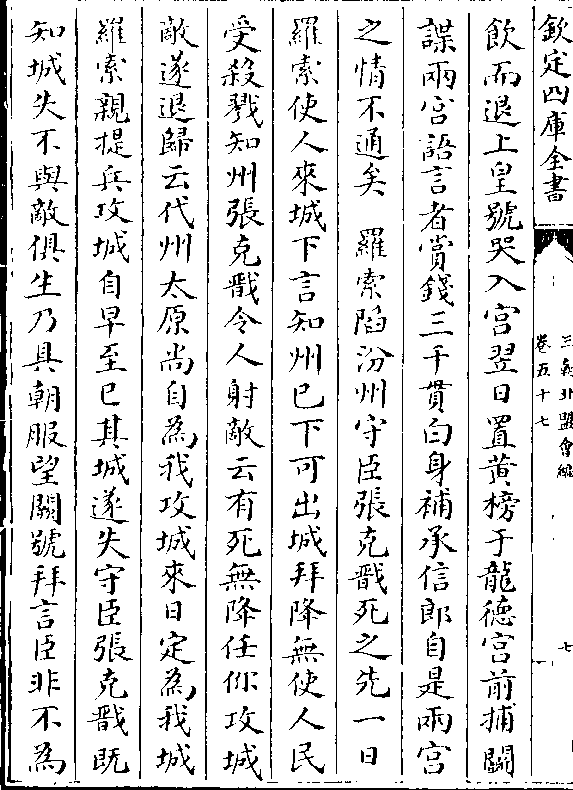 欽定四庫全書
三朝北盟會編
卷五十七
七
飲而退上皇號哭入宮翌日置黃榜于龍德宮前捕闗
諜兩宮語言者賞錢三千貫白身補承信郎自是兩宮
之情不通矣　羅索陷汾州守臣張克戩死之先一日
羅索使人來城下言知州已下可出城拜降無使人民
受殺戮知州張克戬令人射敵云有死無降任你攻城
敵遂退歸云代州太原尚自為我攻城來日定為我城
羅索親提兵攻城自早至巳其城遂失守臣張克戬既
知城失不與敵俱生乃具朝服望闕號拜言臣非不為